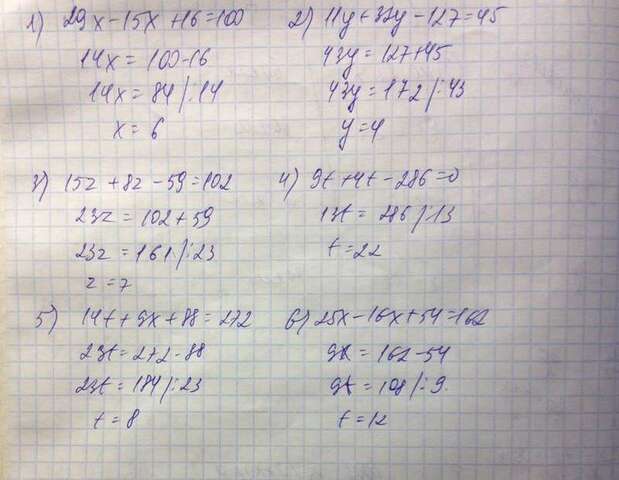 1) 29x - 15x + 16 = 100
14x = 100 - 16
14x = 84 /:14
x = 6
2) 11y + 32y - 127 = 45
43y = 127 + 45
43y = 172 /:43
y = 4
3) 15z + 8z - 59 = 102
23z = 102 + 59
23z = 161 /:23
z = 7
4) 9t + 4t - 286 = 0
13t = 286 /:13
t = 22
5) 14t + 9x + 88 = 272
23t = 272 - 88
23t = 184 /:23
t = 8
6) 25x - 16x + 54 = 162
9t = 162 - 54
9t = 108 /:9
t = 12